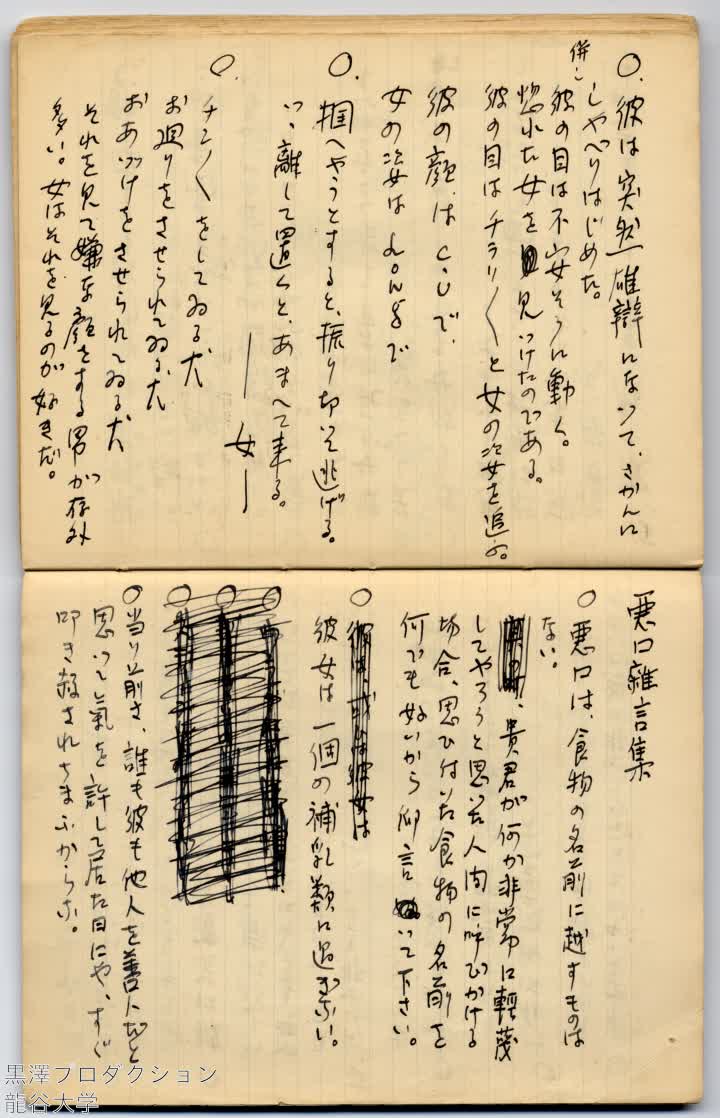 ○. 彼は突然雄辯になつて、さかんに
しやべりはじめた。
併し
彼の目は不安さうに動く。
惚れた女を見つけたのである。
彼の目はチラリ〱と女の姿を追ふ。
彼の顔はC.Uで、
女の姿はLongで
○. 掴へやうとすると、振り切つて逃げる。
離して置くと、あまへて来る。
―女―
○. チン〱をしてゐる犬
お廻りをさせられてゐる犬
おあづけをさせられてゐる犬
それを見て嫌な顔をする男が存外
多い。女はそれを見るのが好きだ。
悪口雑言集
○ 悪口は、食物の名前に越すものは
ない。
貴君が何か非常に軽蔑
してやらうと思つた人間に呼びかける
場合、思ひついた食物の名前を
何でも好いから仰言つて下さい。
○ 彼は或ひは彼女は
彼女は一個の補乳類に過ぎない。
○
○
○
○ 当り前さ、誰も彼も他人を善人だと
思つて氣を許して居た日にや、すぐ
叩き殺されちまふからな。
黒澤プロダクション
龍谷大学